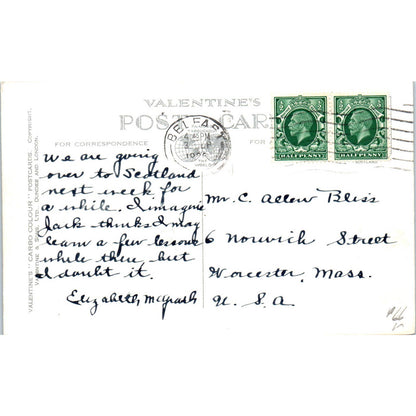 VALENTINE'S
POST CARD
FOR CORRESPONDENCE
BELFAST
HALFPENNY
HALFPENNY
We are going
over to Scotland
next week for
a while. I imagine
Jack thinks I may
learn a few lessons
while there, but
I doubt it.
Elizabeth
Mr. C. Allen Bliss
6 Norwich Street
Worcester, Mass.
U. S. A
VALENTINE'S "CARBO COLOUR" POSTCARDS. COPYRIGHT.
VALENTINE & SONS, LTD. DUNDEE AND LONDON.